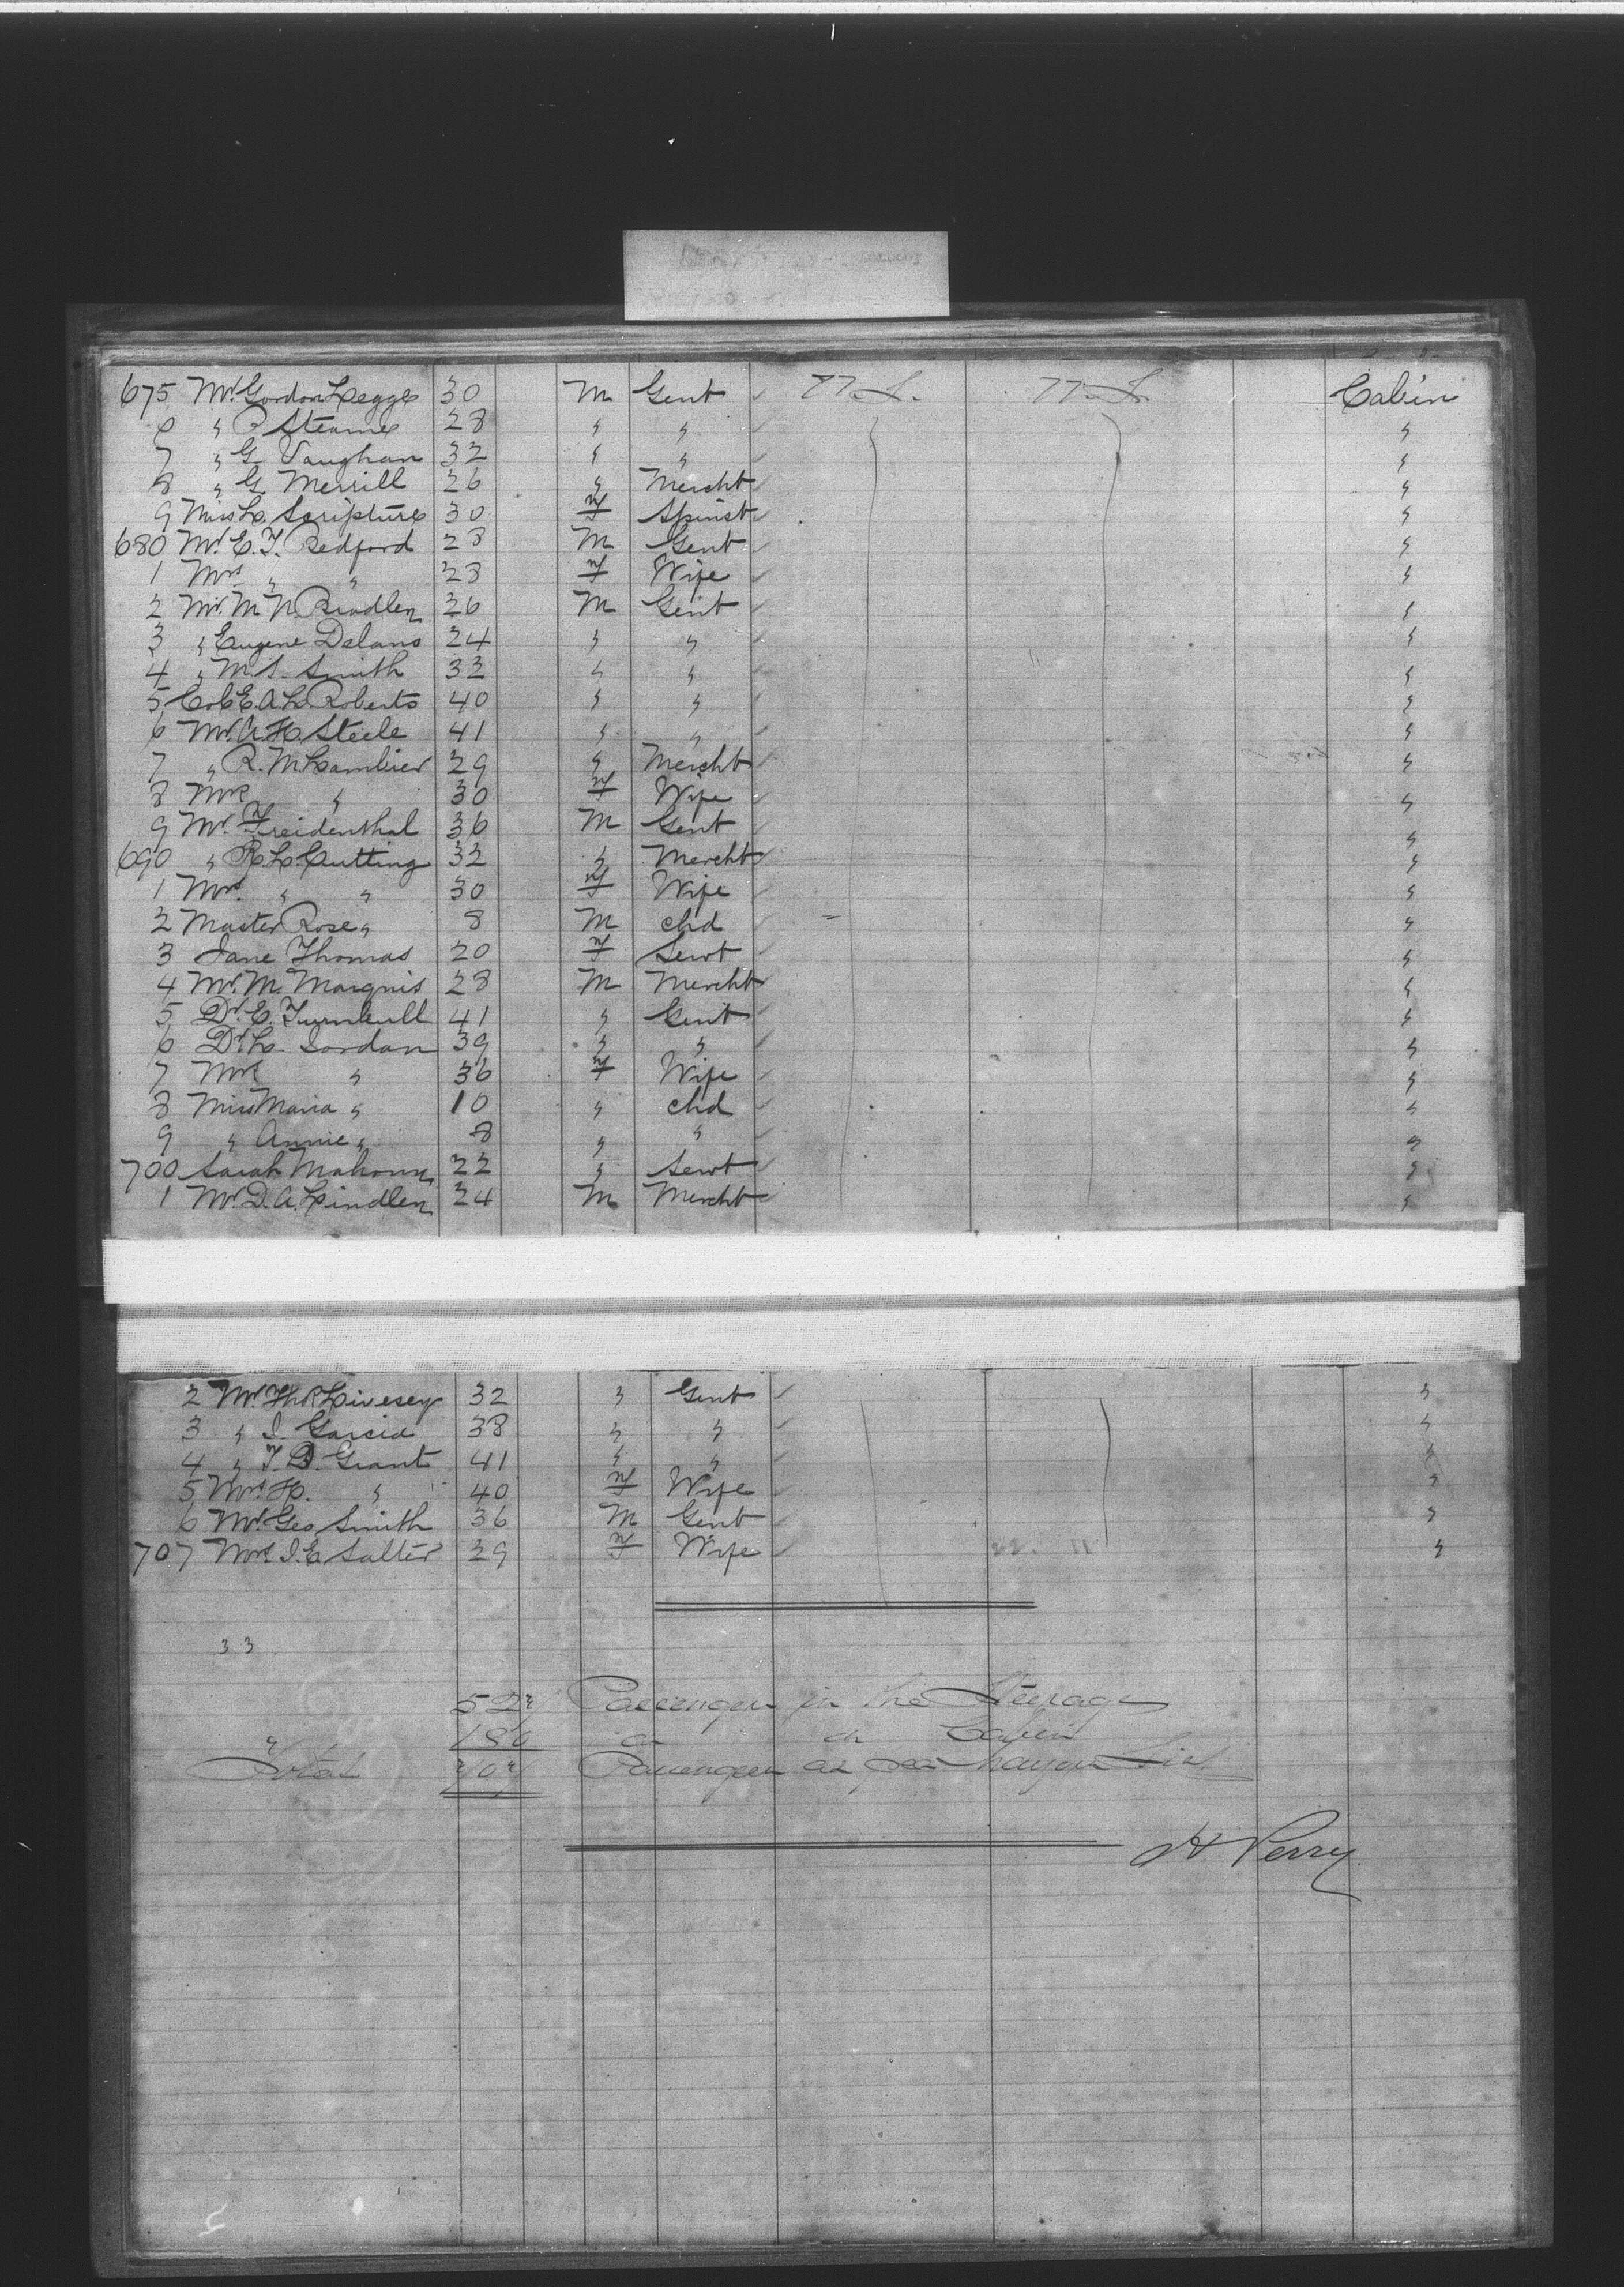 675 Mr. Gordon Legge 30 M Gent U.S. U.S. Cabin
6 " P. Stearns 28 " " "
7 " G. Vaughan 32 " " "
8 " G. Merrill 26 " Mercht "
9 Miss L. Scripture 30 F Spinst "
680 Mr. E. T. Bedford 28 M Gent "
1 Mrs " " 28 F Wife "
2 Mr. M. N. Bradley 26 M Gent "
3 " Eugene Delano 24 " " "
4 " M. S. Smith 32 " " "
5 Col E. A. L. Roberts 40 " " "
6 Mr. A. H. Steele 41 " " "
7 " R. M. 29 " Mercht "
8 Mrs " 30 F Wife "
9 Mr. Freidenthal 36 M Gent "
690 " R. L. Cutting 32 " Mercht "
1 Mrs. " " 30 F Wife "
2 Master Rose " 8 M chd "
3 Jane Thomas 20 F Servt "
4 Mr. M. Marquis 28 M Mercht "
5 Dr. E. Turnbull 41 " Gent "
6 Dr. L. Jordan 39 " " "
7 Mrs " 36 F Wife "
8 Miss Maria " 10 " chd "
9 " Annie " 8 " " "
700 Sarah Mahony 22 " Servt "
1 Mr. D. A. Lindley 24 M Mercht "
2 Mr. Livesey 32 " Gent "
3 " J. Garcia 38 " " "
4 " T. D. Grant 41 " " "
5 Mrs. H. " 40 F Wife "
6 Mr. Geo Smith 36 M Gent "
707 Mrs J. E. Salter 29 F Wife "
33
527 Passengers in the Steerage
" 180 do do Cabin
Total 707 Passengers as per
H Perry